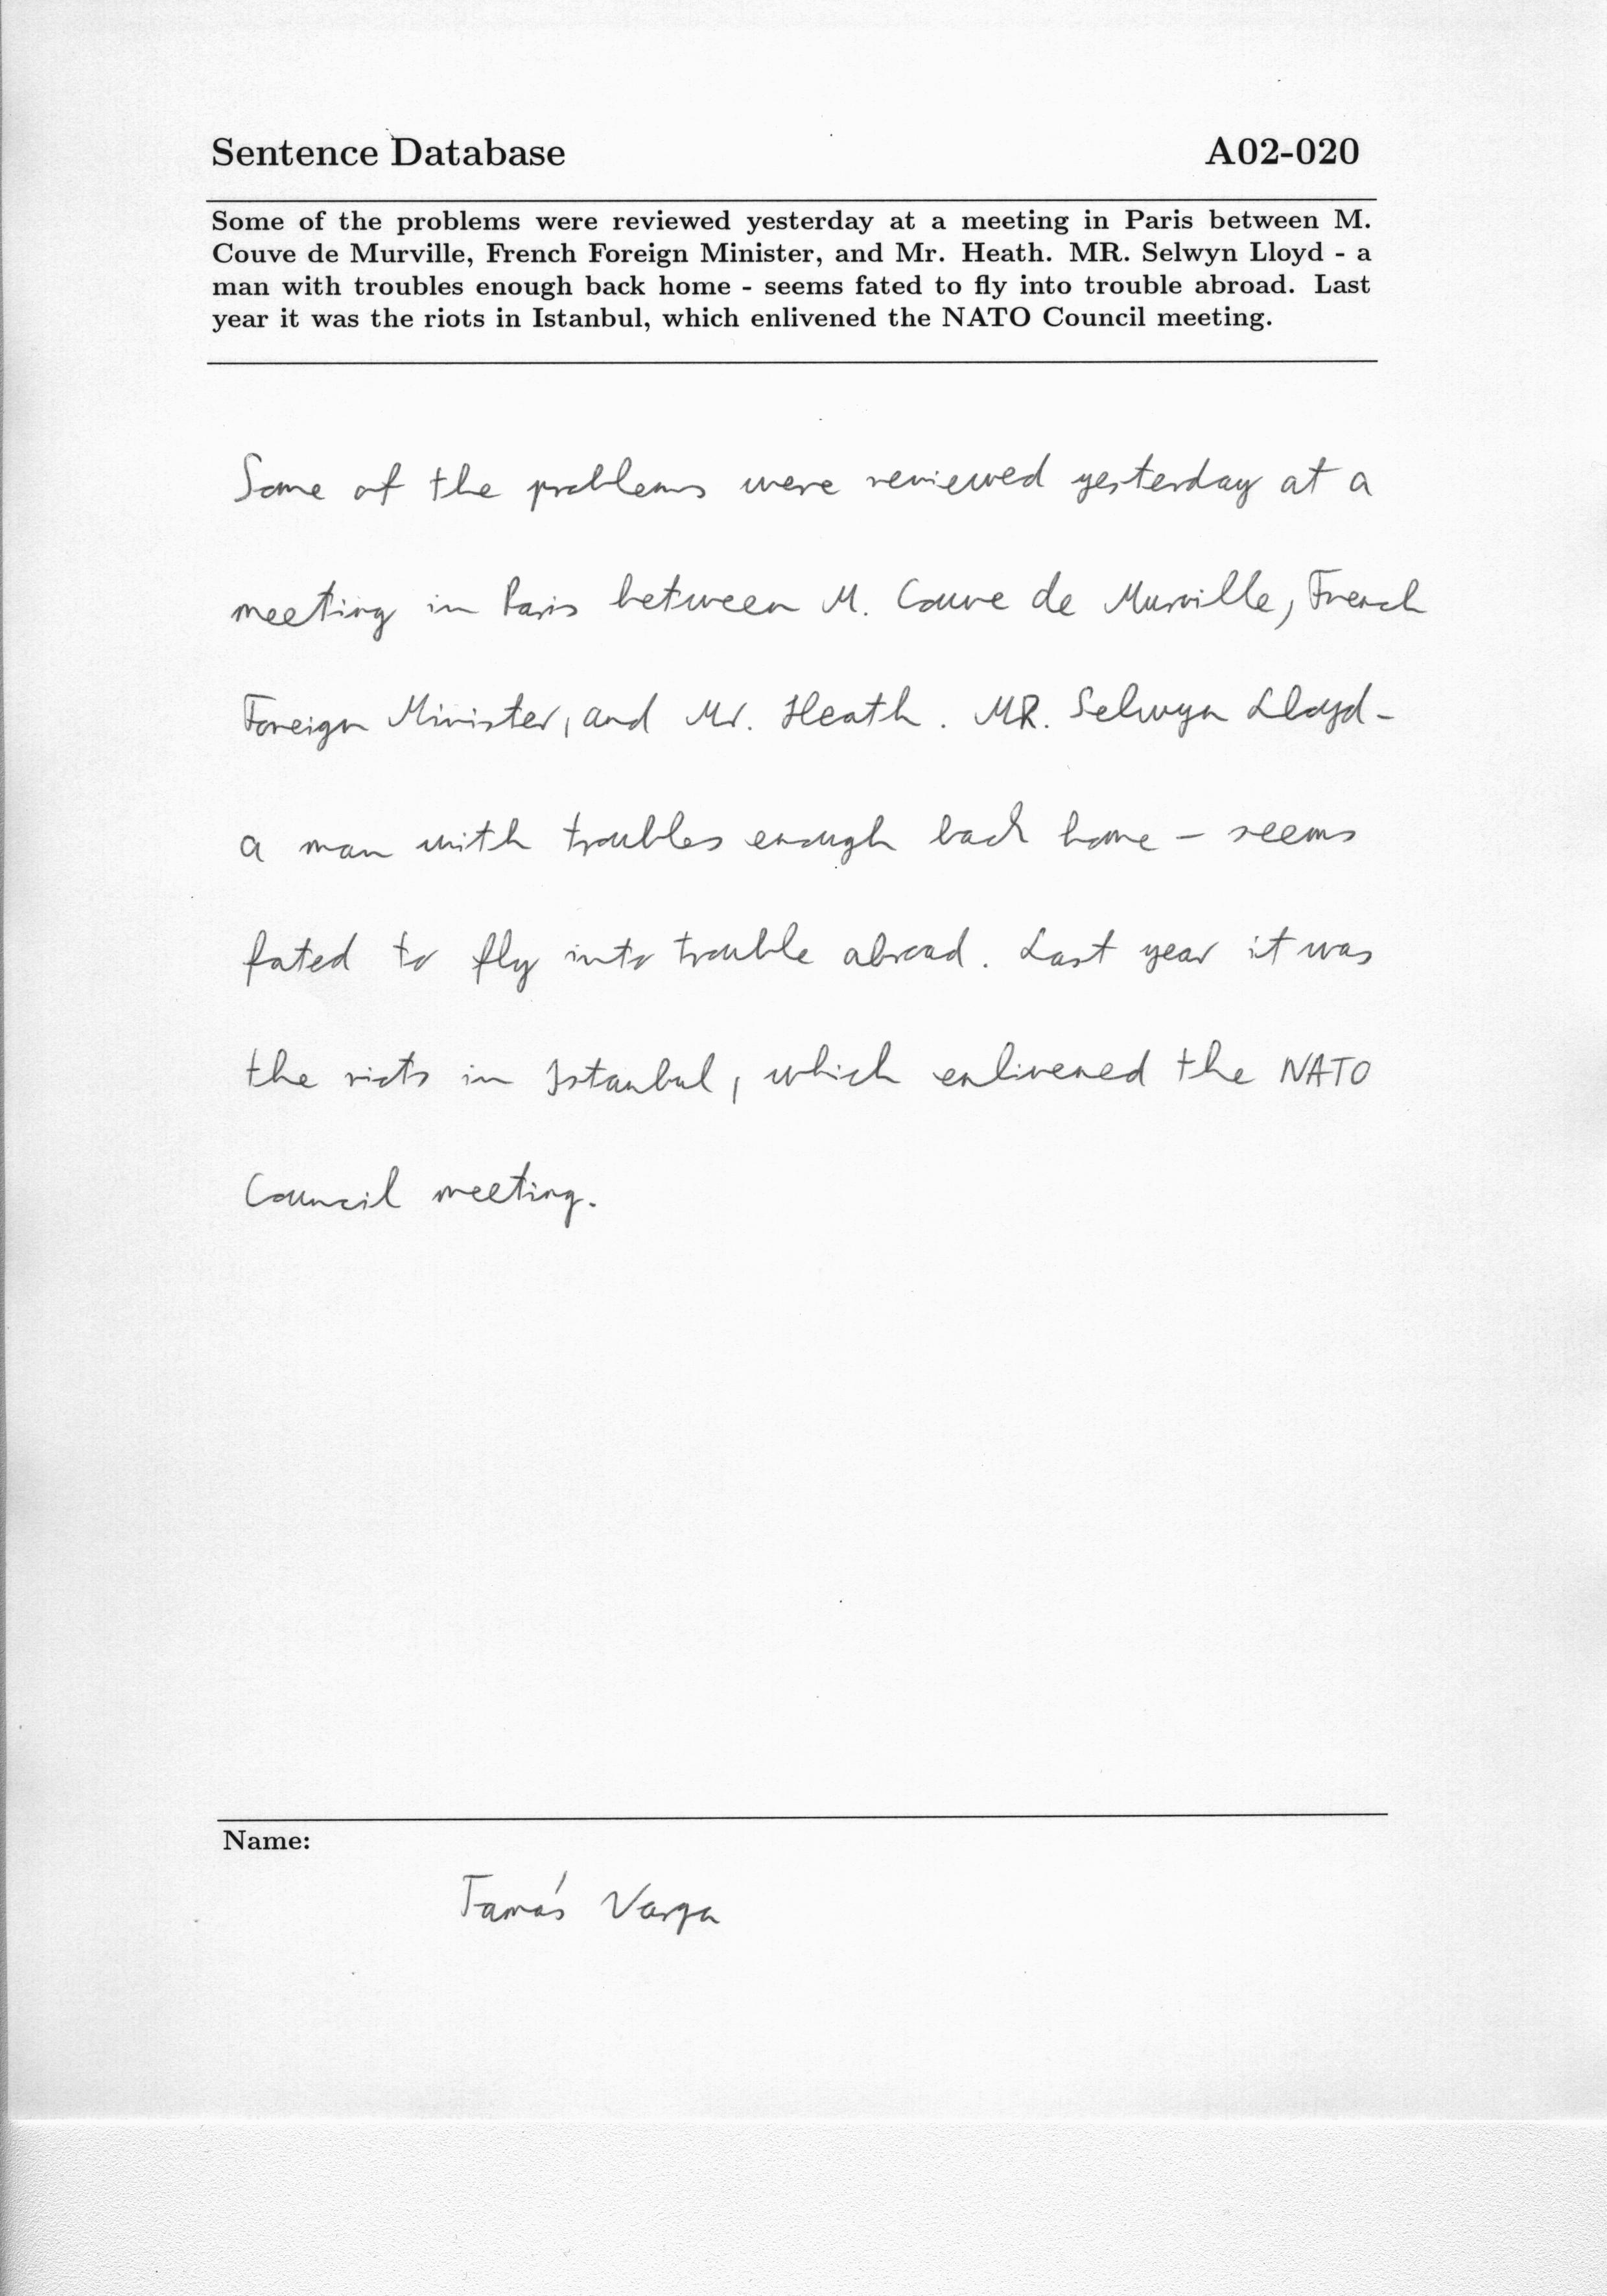 Sentence Database A02-020
Some of the problems were reviewed yesterday at a meeting in Paris between M.
Couve de Murville, French Foreign Minister, and Mr. Heath. MR. Selwyn Lloyd - a
man with troubles enough back home - seems fated to fly into trouble abroad. Last
year it was the riots in Istanbul, which enlivened the NATO Council meeting.
Some of the problems were reviewed yesterday at a
meeting in Paris between M. Couve de Murville, French
Foreign Minister, and Mr. Heath. MR. Selwyn Lloyd -
a man with troubles enough back home - seems
fated to fly into trouble abroad. Last year it was
the riots in Istanbul, which enlivened the NATO
Council meeting.
Name:
Tamás Varga